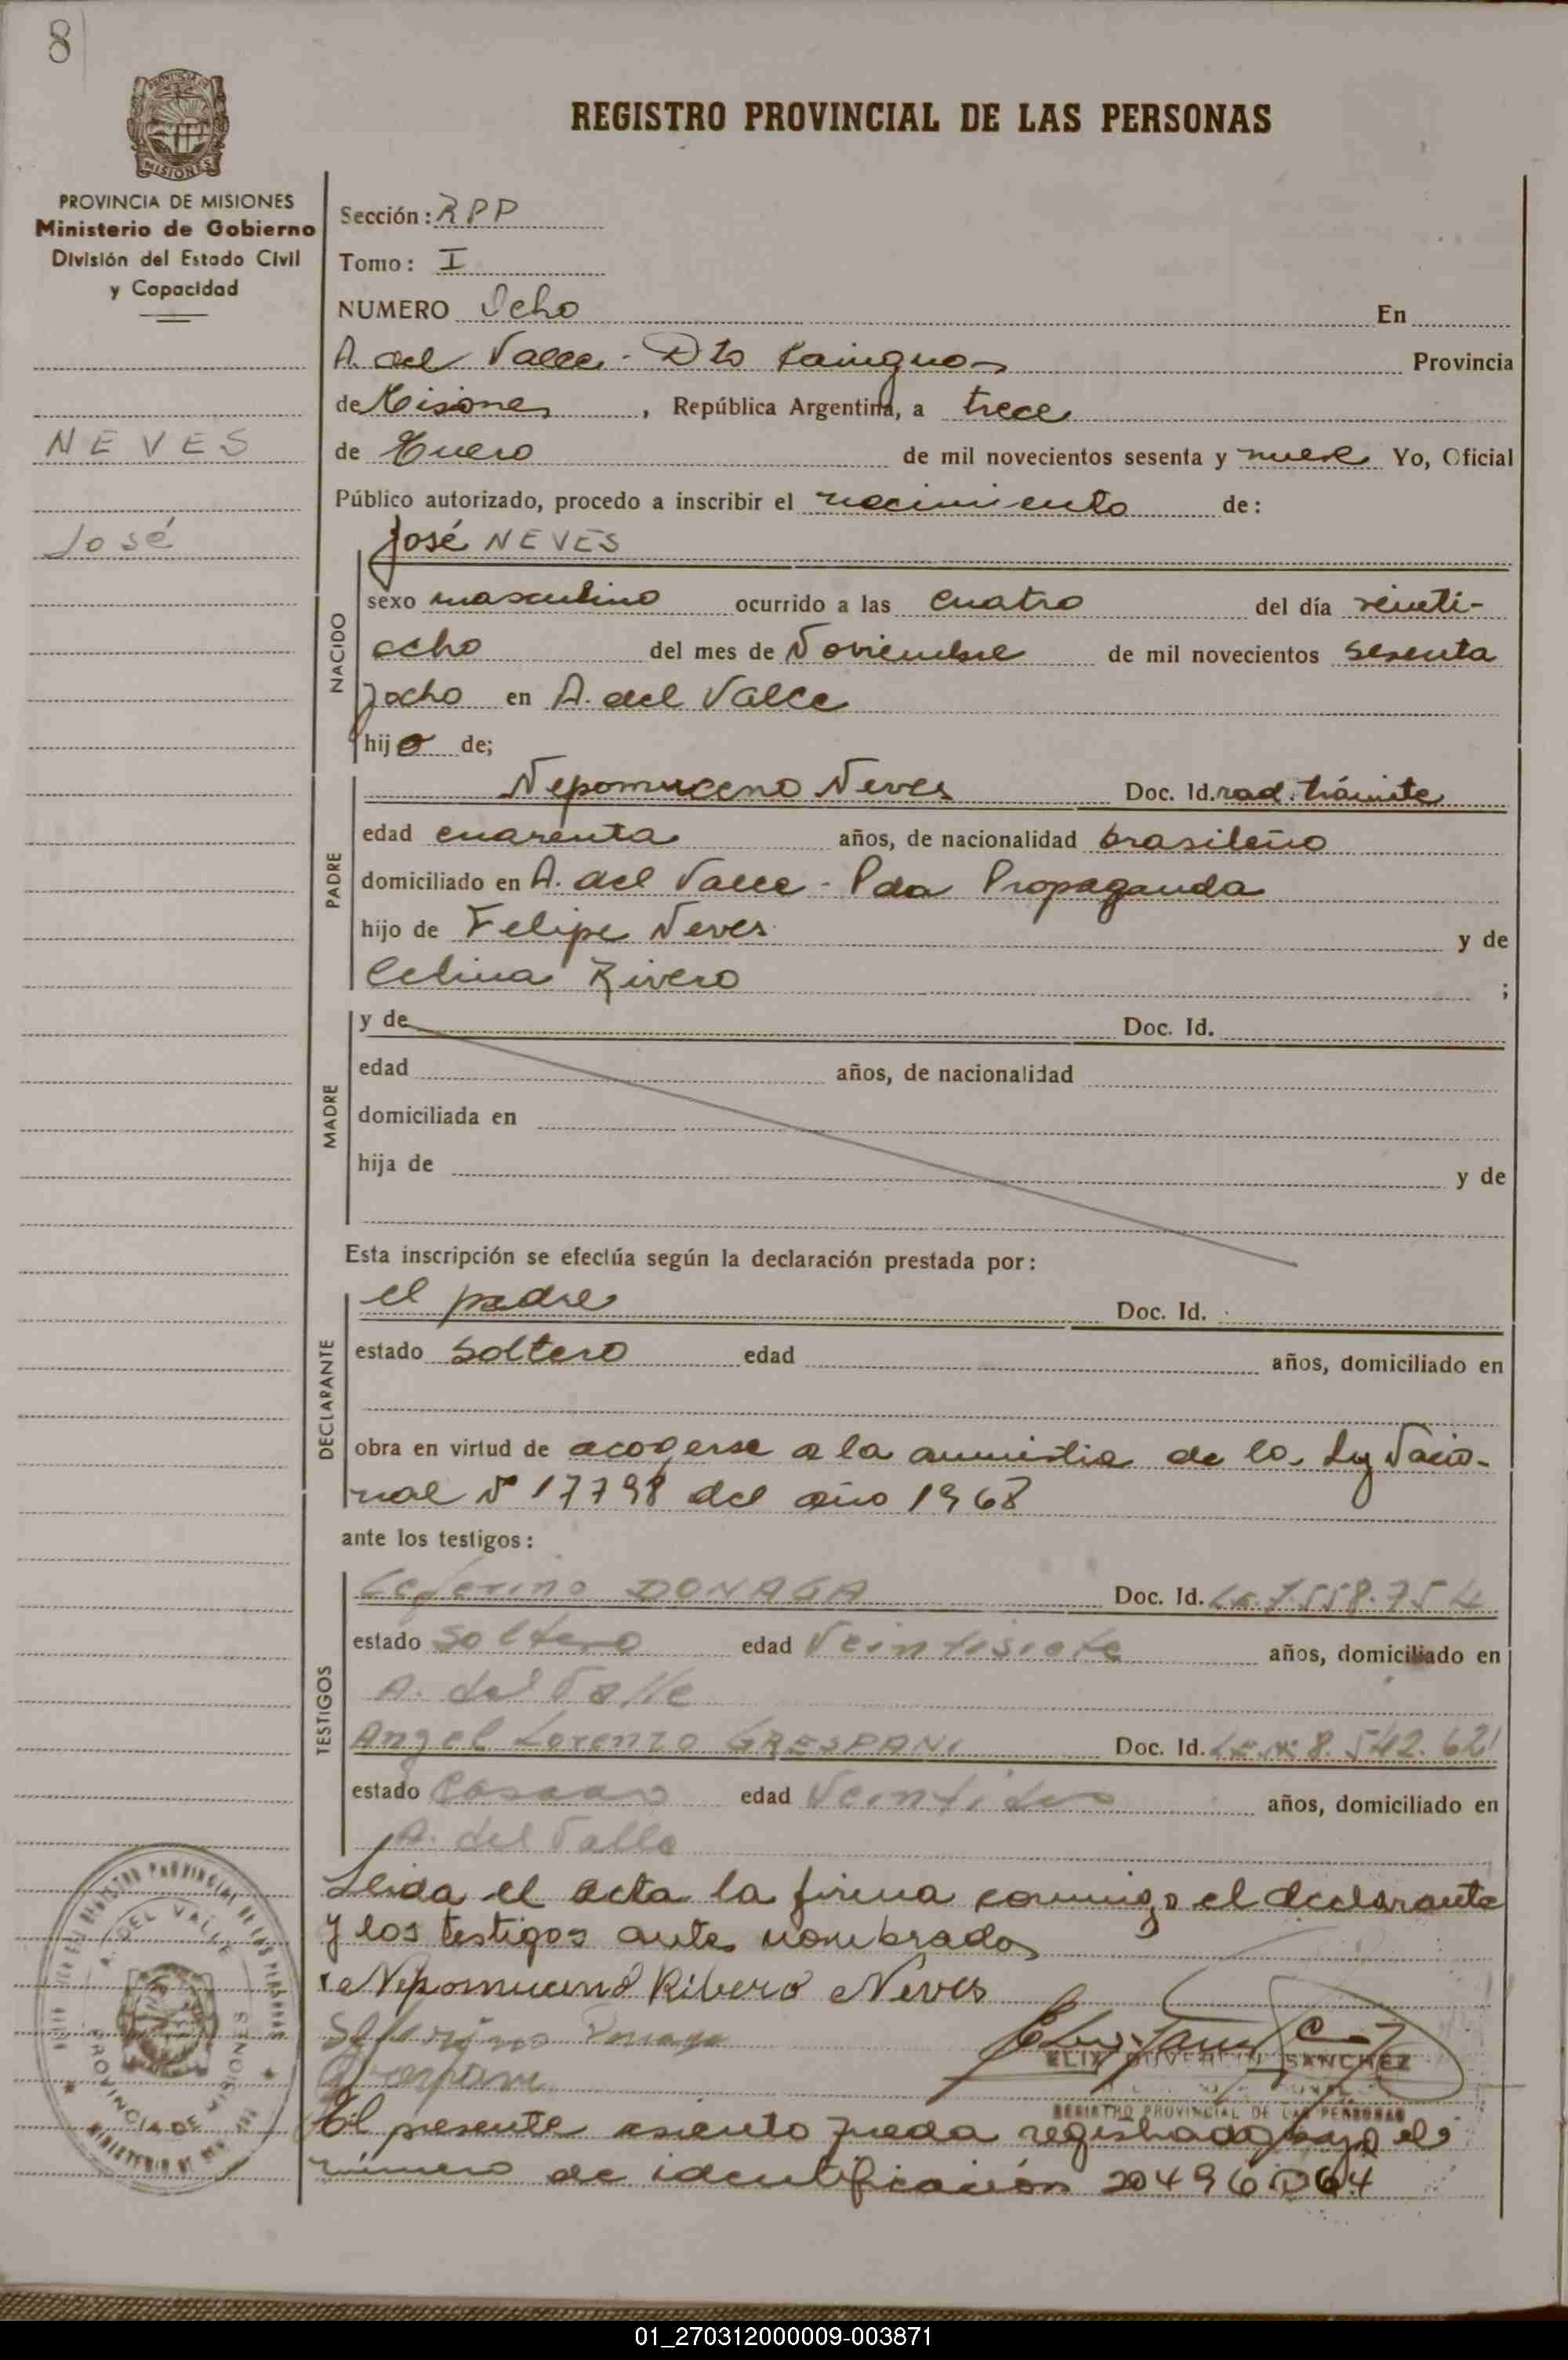 8
REGISTRO PROVINCIAL DE LAS PERSONAS
MISIONES
PROVINCIA DE MISIONES
Ministerio de Gobierno
División del Estado Civil
y Capacidad
NEVES
José
Sección: RPP
Tomo: I
NUMERO Ocho En
A. del Valle - Dto Cainguas Provincia
de Misiones, República Argentina, a trece
de Enero de mil novecientos sesenta y nueve Yo, Oficial
Público autorizado, procedo a inscribir el nacimiento de:
José NEVES
NACIDO
sexo masculino ocurrido a las cuatro del día veinti-
ocho del mes de Noviembre de mil novecientos sesenta
y ocho en A. del Valle
hijo de;
PADRE
Nepomuceno Neves Doc. Id. rad. trámite
edad cuarenta años, de nacionalidad brasileño
domiciliado en A. del Valle - Pda Propaganda
hijo de Felipe Neves y de
Celina Rivero ;
MADRE
y de Doc. Id.
edad años, de nacionalidad
domiciliada en
hija de y de
Esta inscripción se efectúa según la declaración prestada por:
DECLARANTE
el padre Doc. Id.
estado soltero edad años, domiciliado en
obra en virtud de acogerse a la amnistia de la Ley Nacio-
nal Nº 17798 del año 1968
ante los testigos:
TESTIGOS
Ceferino DONAGA Doc. Id. L.E. 7.558.754
estado Soltero edad Veintisiete años, domiciliado en
A. del Valle
Angel Lorenzo GRESPANI Doc. Id. L.E. Nº 8.542.621
estado Casado edad Veintidos años, domiciliado en
A. del Valle
Leida el acta la firma conmigo el declarante
y los testigos antes nombrados
Nepomuceno Ribero Neves
ELIX DUVERLIN SANCHEZ
REGISTRO PROVINCIAL DE LAS PERSONAS
El presente asiento queda registrado bajo el
número de identificación 20496064
A. DEL VALLE
PROVINCIA DE MISIONES
01_270312000009-003871